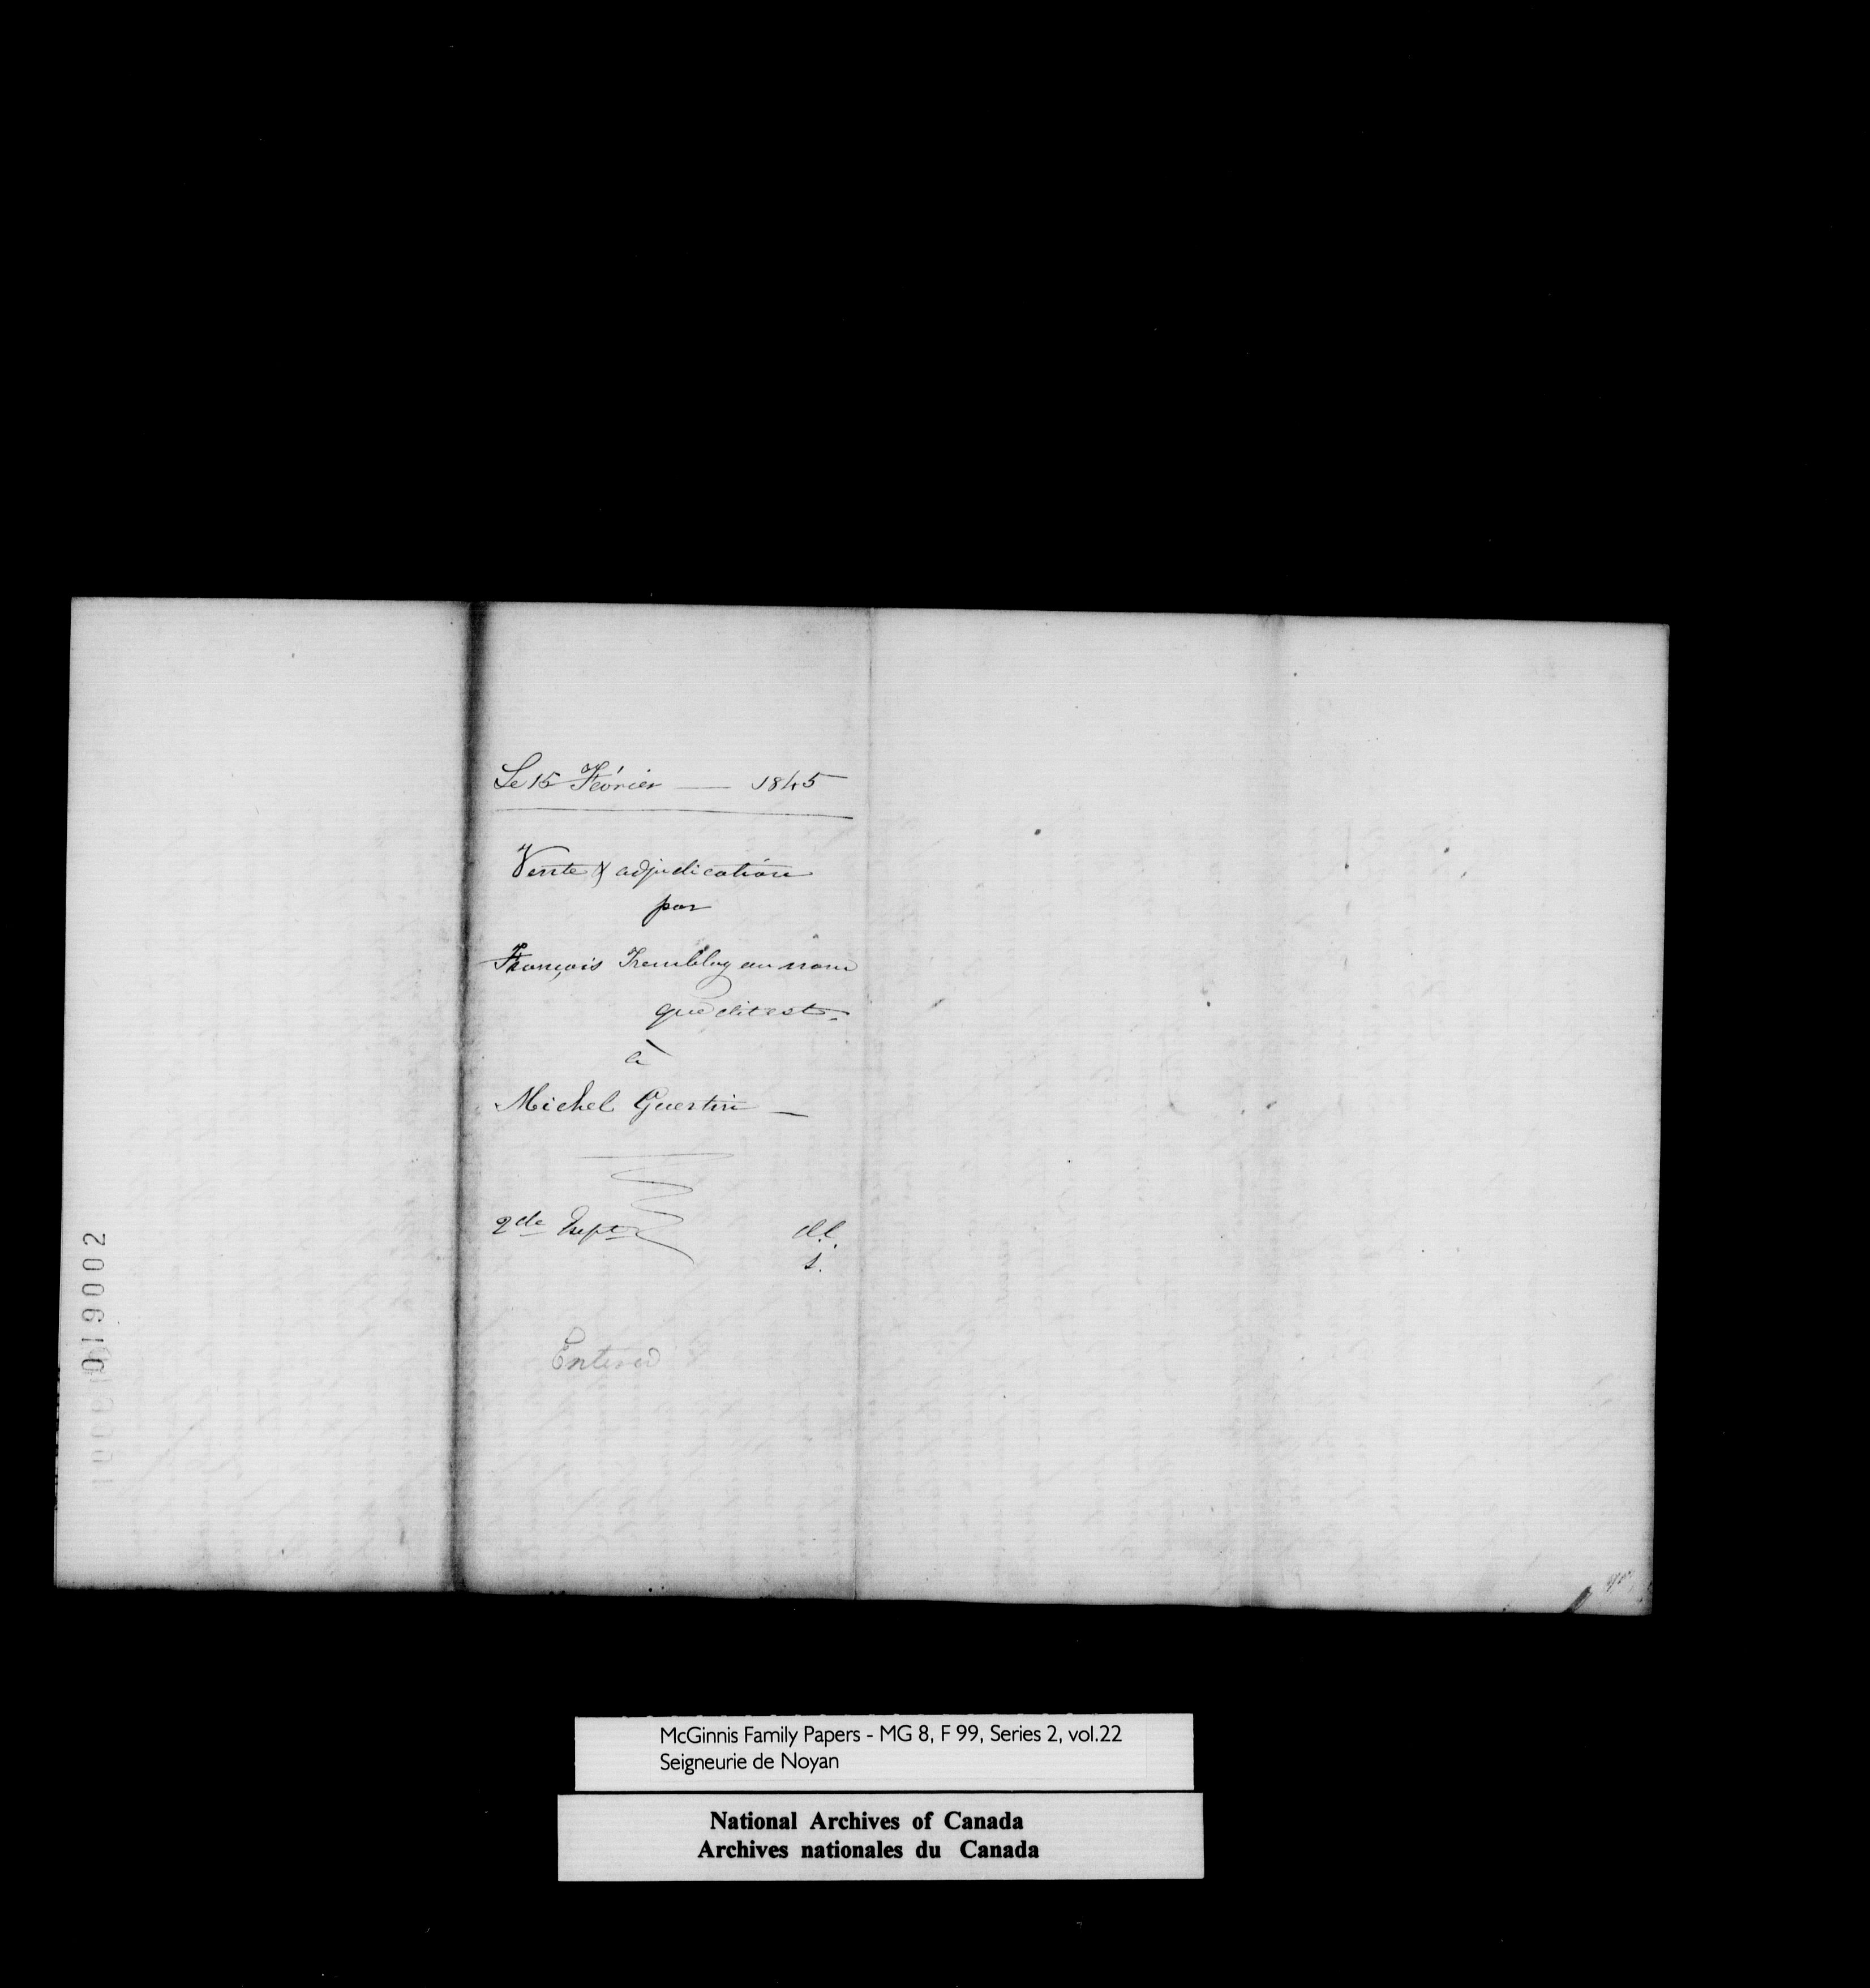 Le 15 Février — 1845
Vente & adjudication
par
François Tremblay au nom
que dit est.
à
Michel Guertin —
2de Expn
d.l.
s.
Entered
019002
McGinnis Family Papers - MG 8, F 99, Series 2, vol.22
Seigneurie de Noyan
National Archives of Canada
Archives nationales du Canada